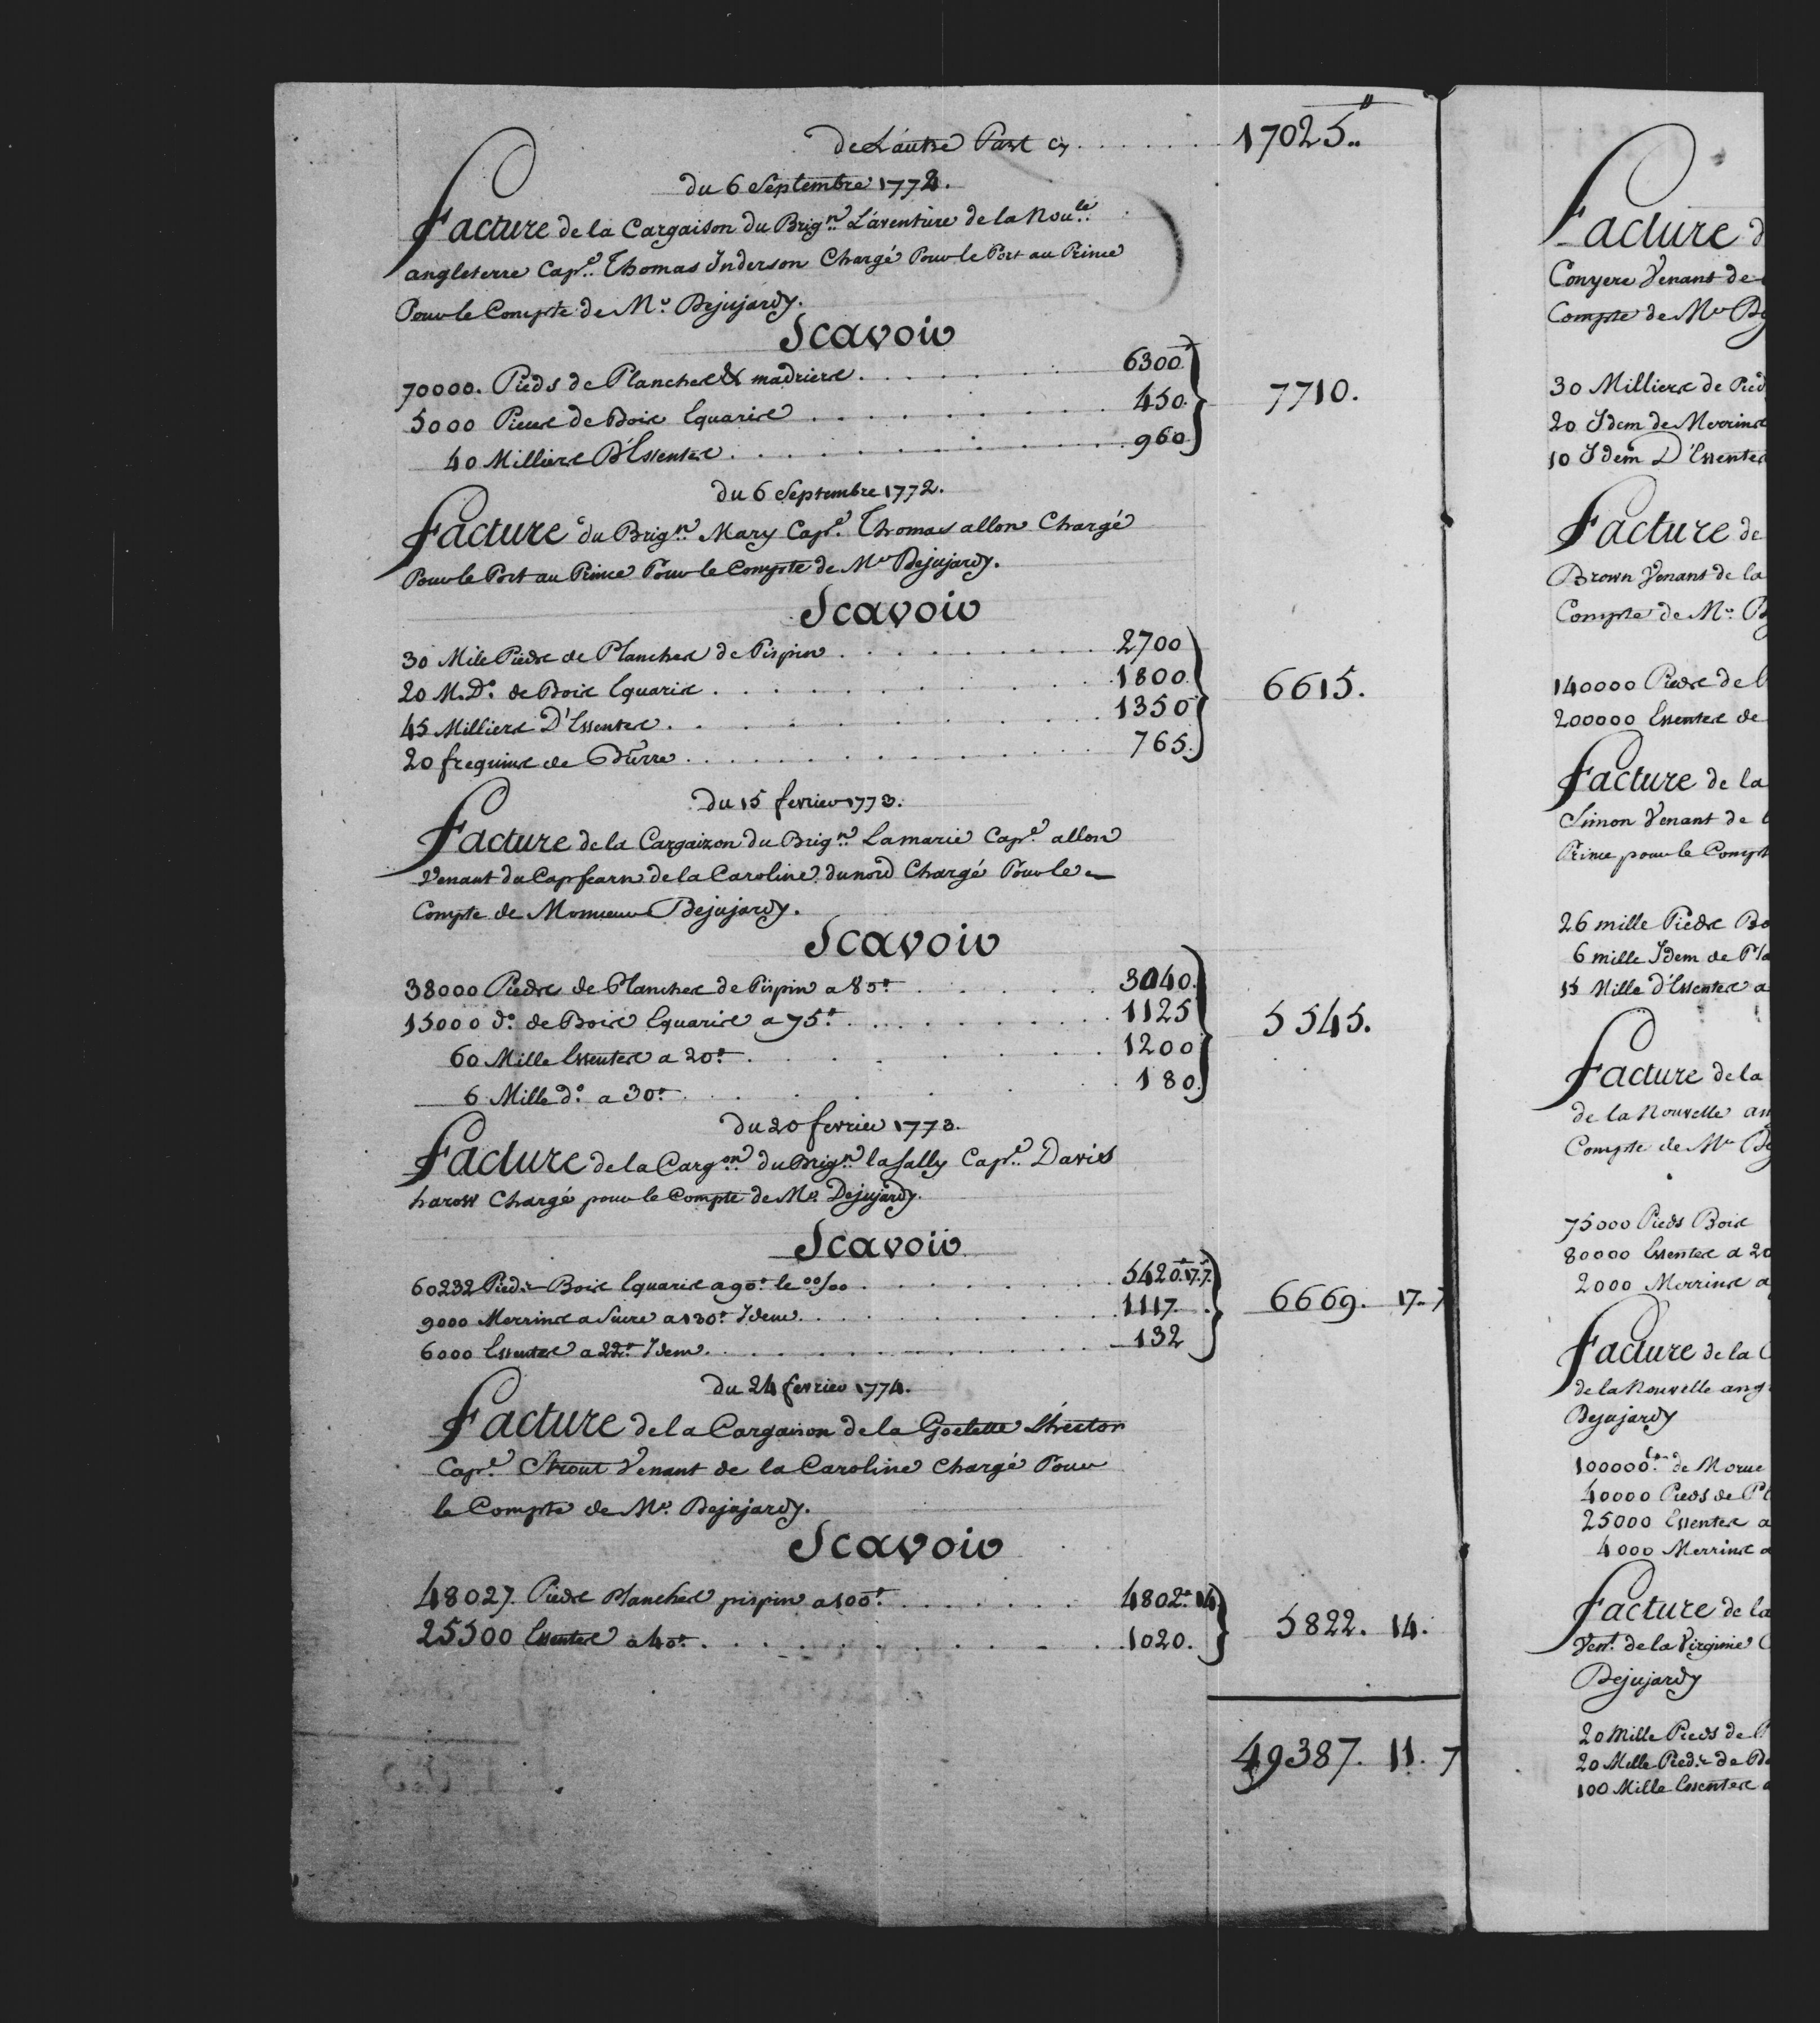 de L'autre Part Cy . . . . . . 17025 ''
du 6 Septembre 1772.
Facture de la Cargaison du Brig.n L'aventure de la Nou.le
angleterre Cap.e Thomas Inderson Chargé Pour le Port au Prince
Pour le Compte de M.r Dejujardy.
Scavoir
70000. Pieds de Planches & madriers . . . . . . 6300
5000 Pieces de Bois Equaris . . . . . . 450 } 7710.
40 Milliers D'Essentes . . . . . . 960
du 6 Septembre 1772.
Facture du Brig.n Mary Cap.e Thomas allon Chargé
Pour le Port au Prince Pour le Compte de M.r Dejujardy.
Scavoir
30 Mile Pieds de Planches de Pispin . . . . . . 2700
20 M. D.o de Bois Equaris . . . . . . 1800 } 6615.
45 Milliers D'Essentes . . . . . . 1350
20 frequins de Bûrre . . . . . . 765.
du 15 fevrier 1773.
Facture de la Cargaizon du Brig.n Lamarie Cap.e allon
Venant du Capfearn de la Caroline du nord Chargé Pour le
Compte de Monsieur Dejujardy.
Scavoir
38000 Pieds de Planches de Pispin a 80# . . . . . . 3040.
15000 d.o de Bois Equaris a 75# . . . . . . 1125 } 5545.
60 Mille Essentes a 20# . . . . . . 1200
6 Mille d.o a 30# . . . . . . 180.
du 20 fevrier 1773.
Facture de la Carg.on du Brig.n la Sally Cap.e Davis
harow Chargé pour le Compte de M.r Dejujardy.
Scavoir
60232 Pieds Bois Equaris a 90# le 00/00 . . . . . . 5420# 17. 7.
9000 Merrins a Sucre a 130# Idem . . . . . . 1117. } 6669. 17. 7
6000 Essentes a 22# Idem . . . . . . 132
du 24 fevrier 1774.
Facture de la Cargaison de la Goelette L'hector
Cap.e Strout Venant de la Caroline Chargé Pour
le Compte de M.r Dejujardy.
Scavoir
48027. Pieds Planches pispin a 100# . . . . . . 4802# 14 } 5822. 14.
25500 Essentes a 40# . . . . . . 1020.
49387. 11. 7
Facture d
Conyere Venant de
Compte de M.r De
30 Milliers de Pied
20 Idem de Merrins
10 Idem D'Essentes
Facture de
Brown Venant de la
Compte de M.r D
140000 Pieds de
200000 Essentes de
Facture de la
Simon Venant de
Prince pour le Compt
26 mille Pieds Bo
6 mille Idem de Pla
15 Mille d'Essentes a
Facture de la
de la Nouvelle an
Compte de M.r De
75000 Pieds Bois
80000 Essentes a 20
2000 Merrins a
Facture de la C
de la Nouvelle ang
Dejujardy
100000 lb de Morue
40000 Pieds de Pl
25000 Essentes a
4000 Merrins a
Facture de la
Ven.t de la Virginie C
Dejujardy
20 Mille Pieds de P
20 Mille Pieds de Bo
100 Mille Essentes a